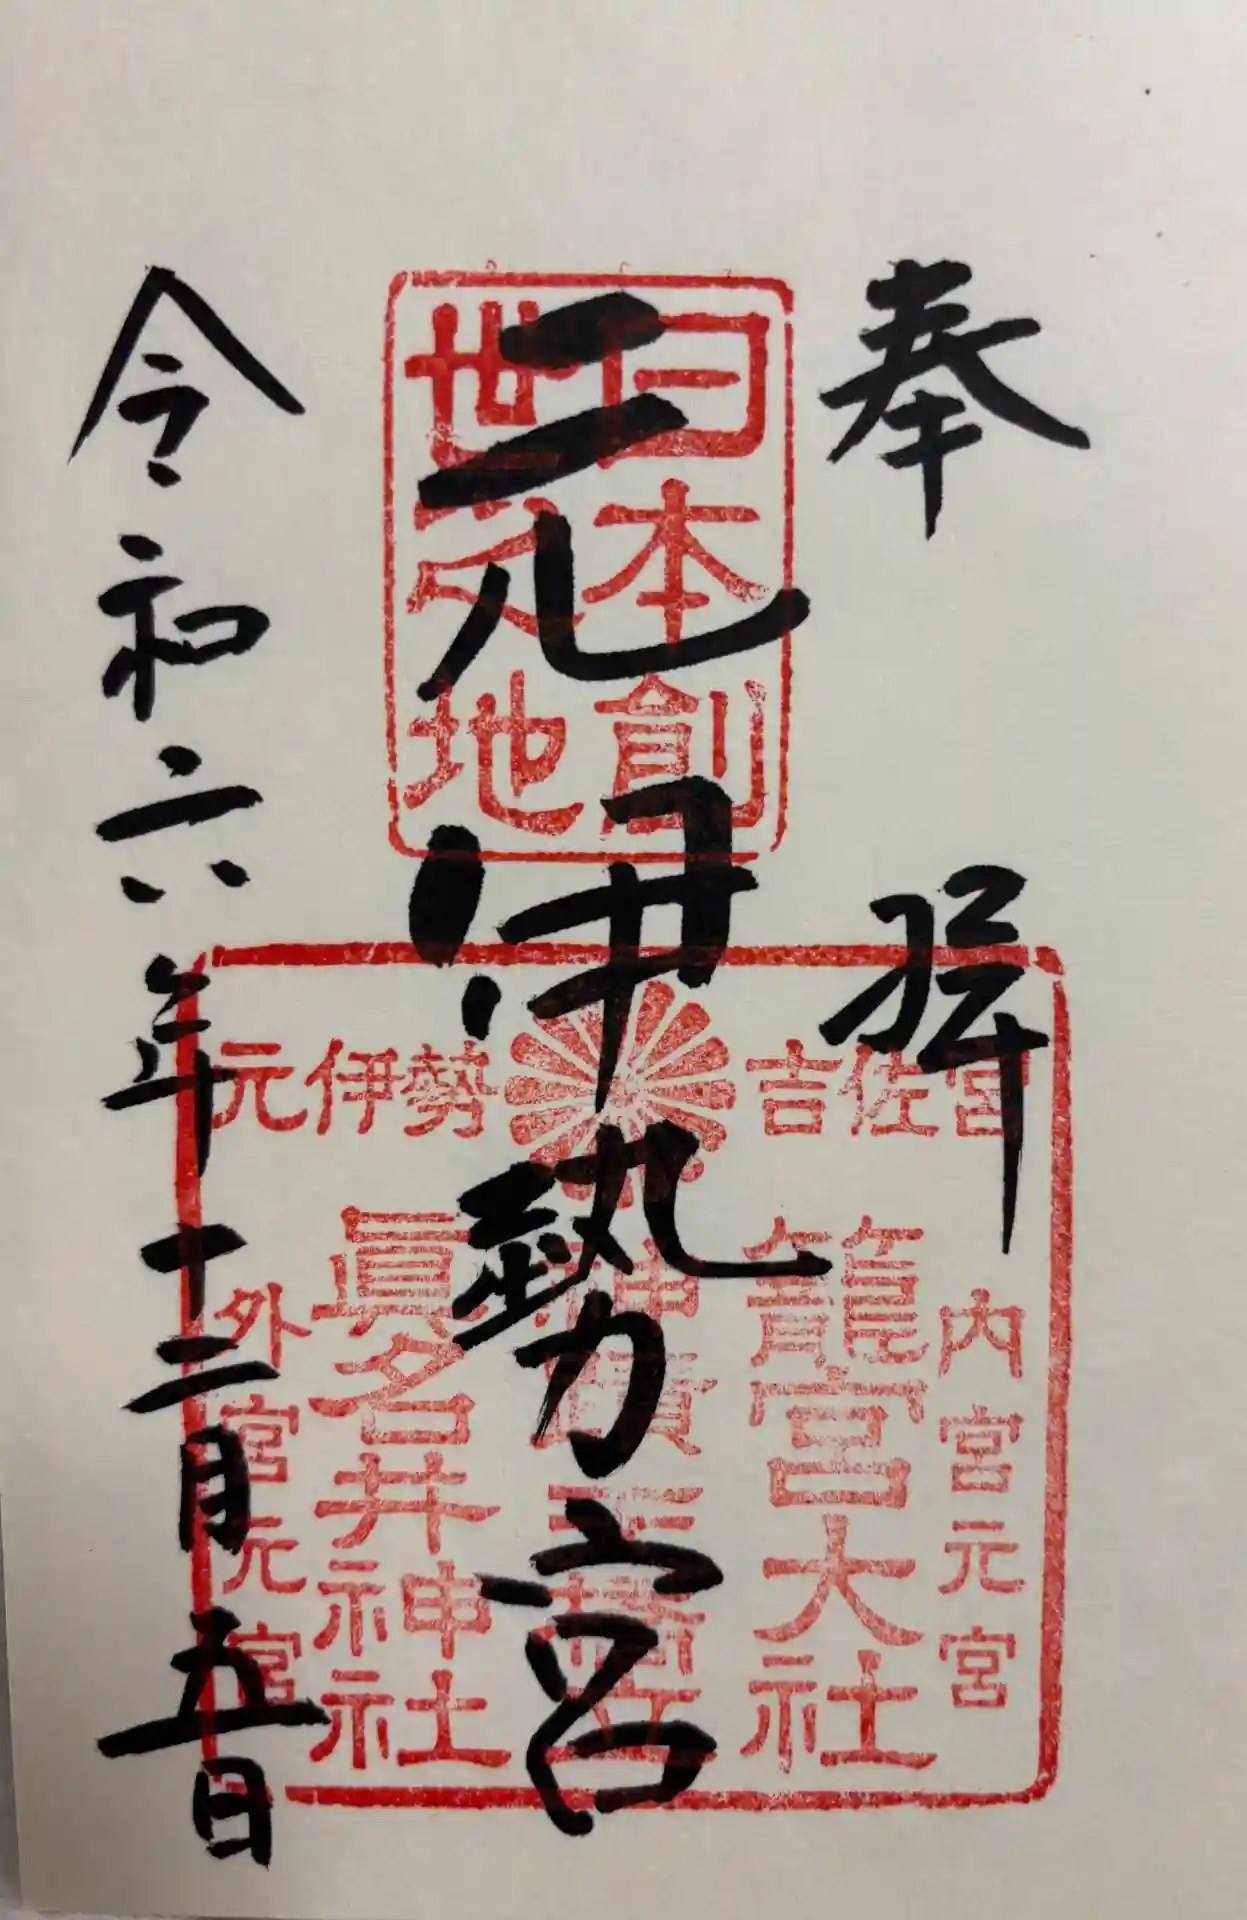 奉拝
日本創
世之地
元伊勢宮
元伊勢 吉佐宮
内宮元宮
籠宮大社
神蹟天橋立
眞名井神社
外宮元宮
令和六年十二月五日